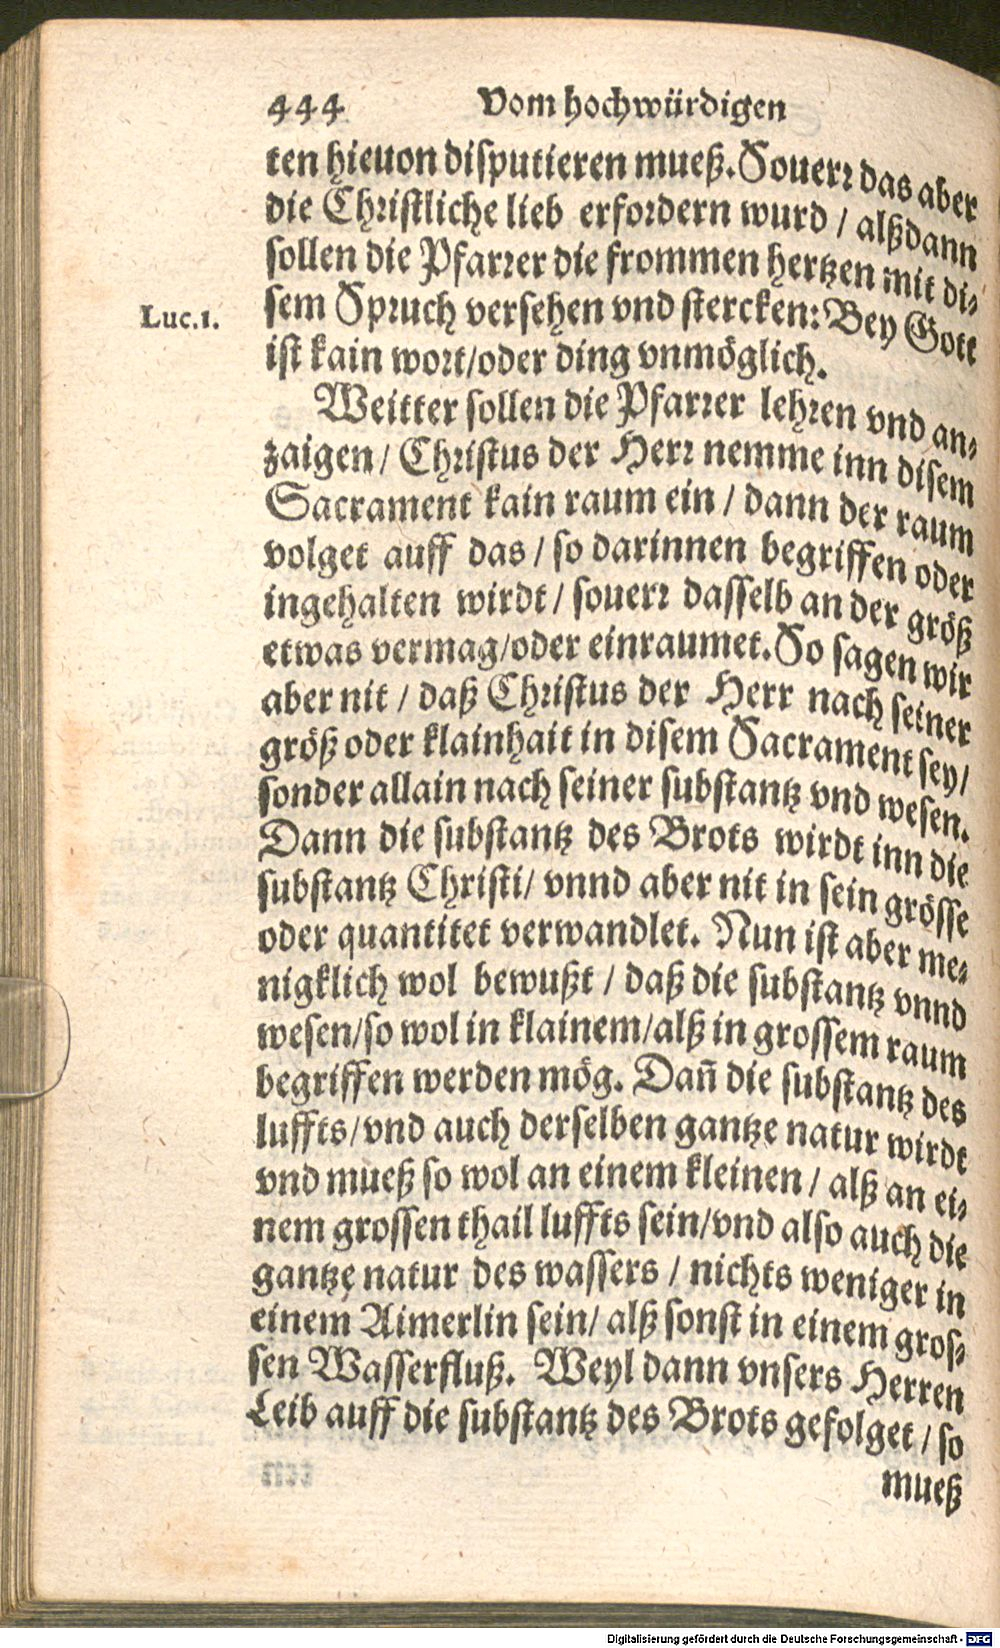 444 Vom hochwürdigen
ten hieuon disputieren mueß. Souerr das aber
die Christliche lieb erfordern wurd / alßdann
sollen die Pfarrer die frommen hertzen mit di-
sem Spruch versehen vnd stercken: Bey Gott
Luc. 1.
ist kain wort/oder ding vnmöglich.
Weitter sollen die Pfarrer lehren vnd an-
zaigen / Christus der Herr nemme inn disem
Sacrament kain raum ein / dann der raum
volget auff das / so darinnen begriffen oder
ingehalten wirdt / souerr dasselb an der größ
etwas vermag/oder einraumet. So sagen wir
aber nit / daß Christus der Herr nach seiner
größ oder klainhait in disem Sacrament sey/
sonder allain nach seiner substantz vnd wesen.
Dann die substantz des Brots wirdt inn die
substantz Christi/ vnnd aber nit in sein grösse
oder quantitet verwandlet. Nun ist aber me-
nigklich wol bewußt / daß die substantz vnnd
wesen/so wol in klainem/alß in grossem raum
begriffen werden mög. Dañ die substantz des
luffts/vnd auch derselben gantze natur wirdt
vnd mueß so wol an einem kleinen / alß an ei-
nem grossen thail luffts sein/vnd also auch die
gantze natur des wassers / nichts weniger in
einem Aimerlin sein/ alß sonst in einem gros-
sen Wasserfluß. Weyl dann vnsers Herren
Leib auff die substantz des Brots gefolget / so
mueß
Digitalisierung gefördert durch die Deutsche Forschungsgemeinschaft - DFG